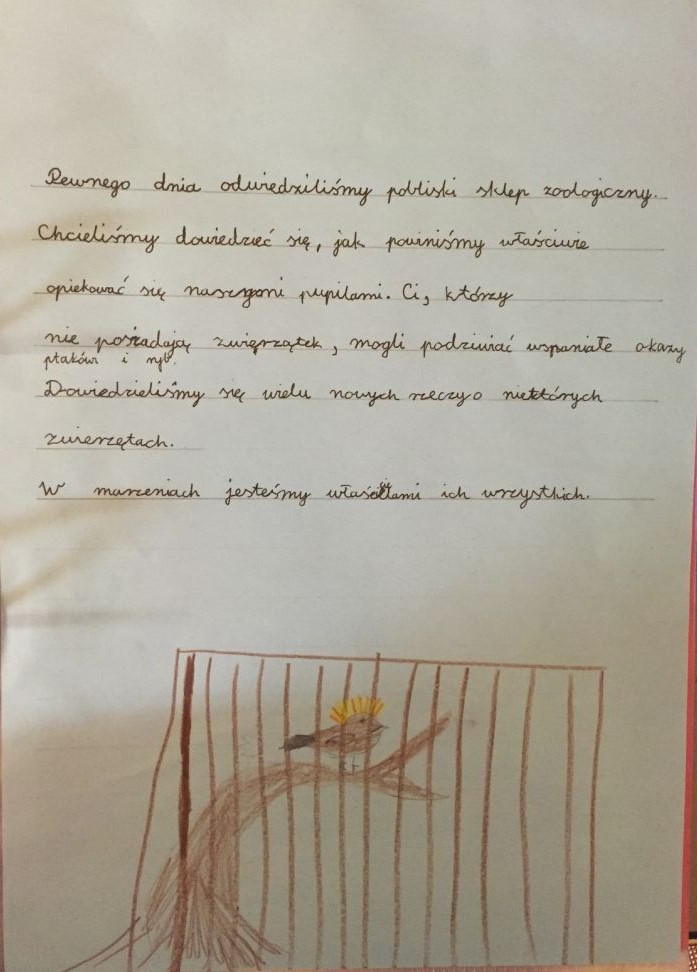 Pewnego dnia odwiedziliśmy pobliski sklep zoologiczny.
Chcieliśmy dowiedzieć się, jak powiniśmy właściwie
opiekować się naszymi pupilami. Ci, którzy
nie posiadają zwierzątek, mogli podziwiać wspaniałe okazy
ptaków i ryb.
Dowiedzieliśmy się wielu nowych rzeczy o niektórych
zwierzętach.
W marzeniach jesteśmy ich wszystkich.